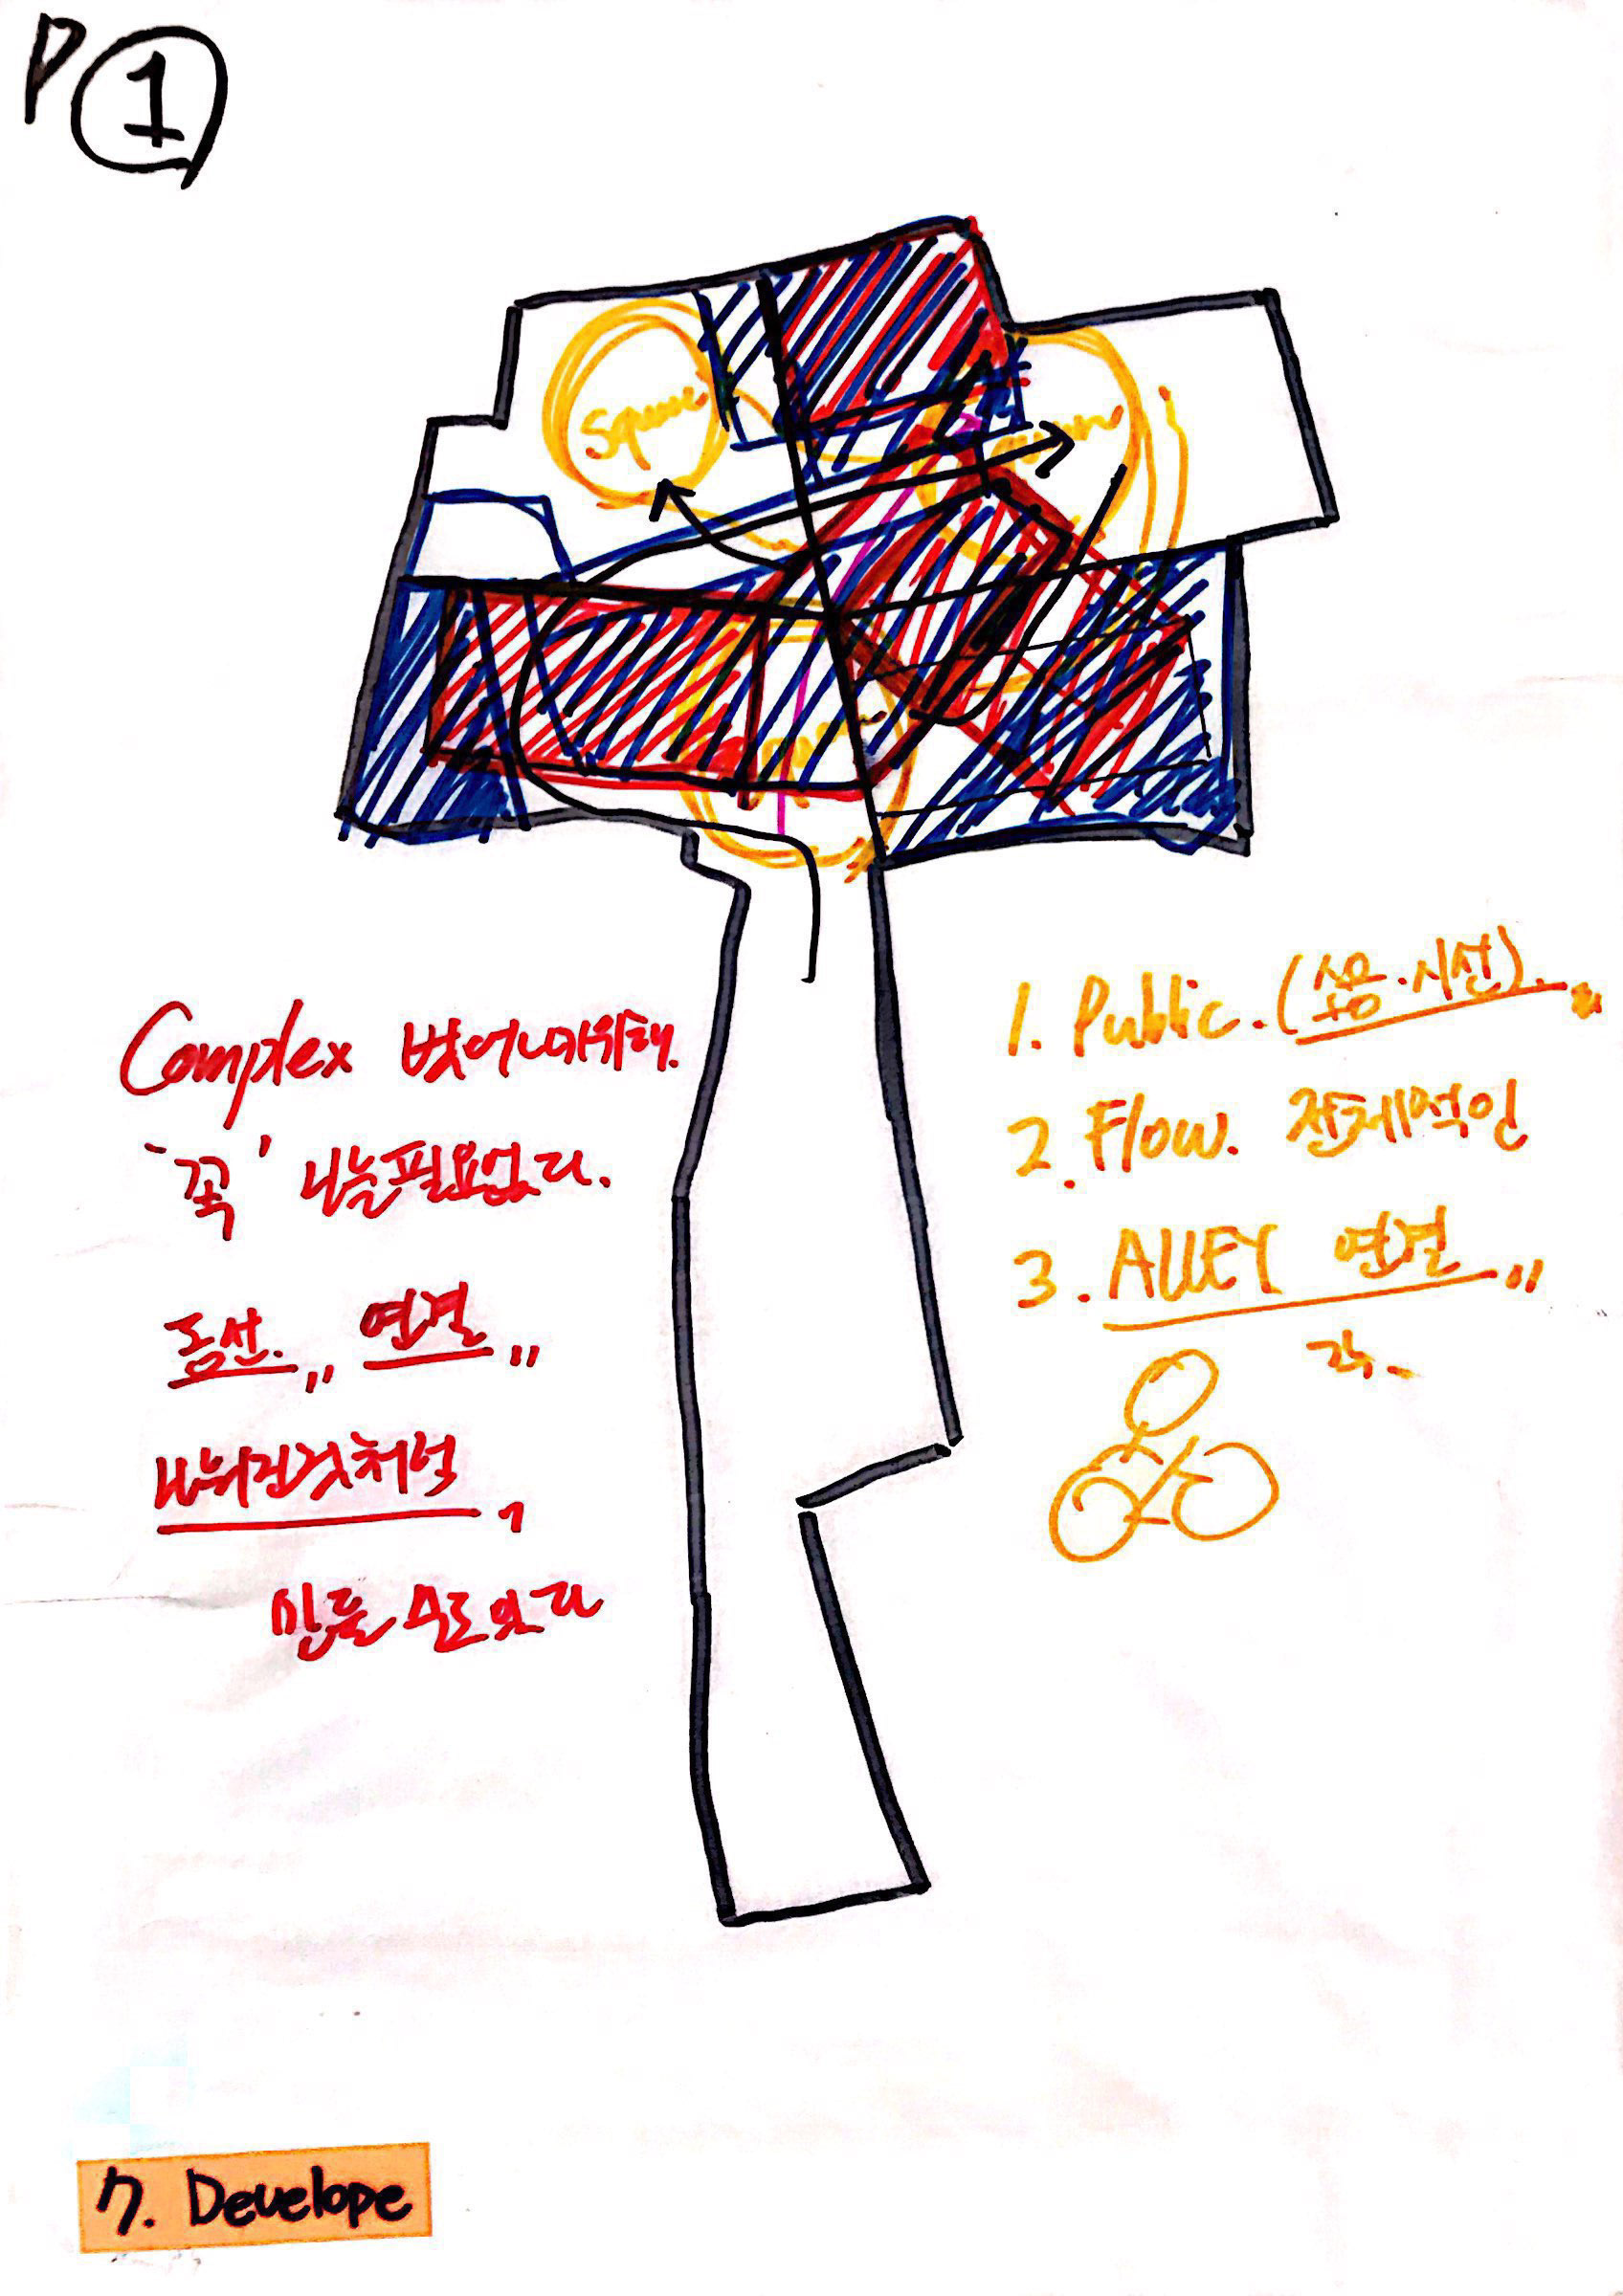 P ①
square
Complex 벗어나기위해.
'꼭' 나눌필요없다.
동선.,, 연결,,
나눠진것처럼,
만들 수도 있다
1. Public. (수용.시선).
2. Flow. 전체적인
3. ALLEY 연결,,
7. Develope